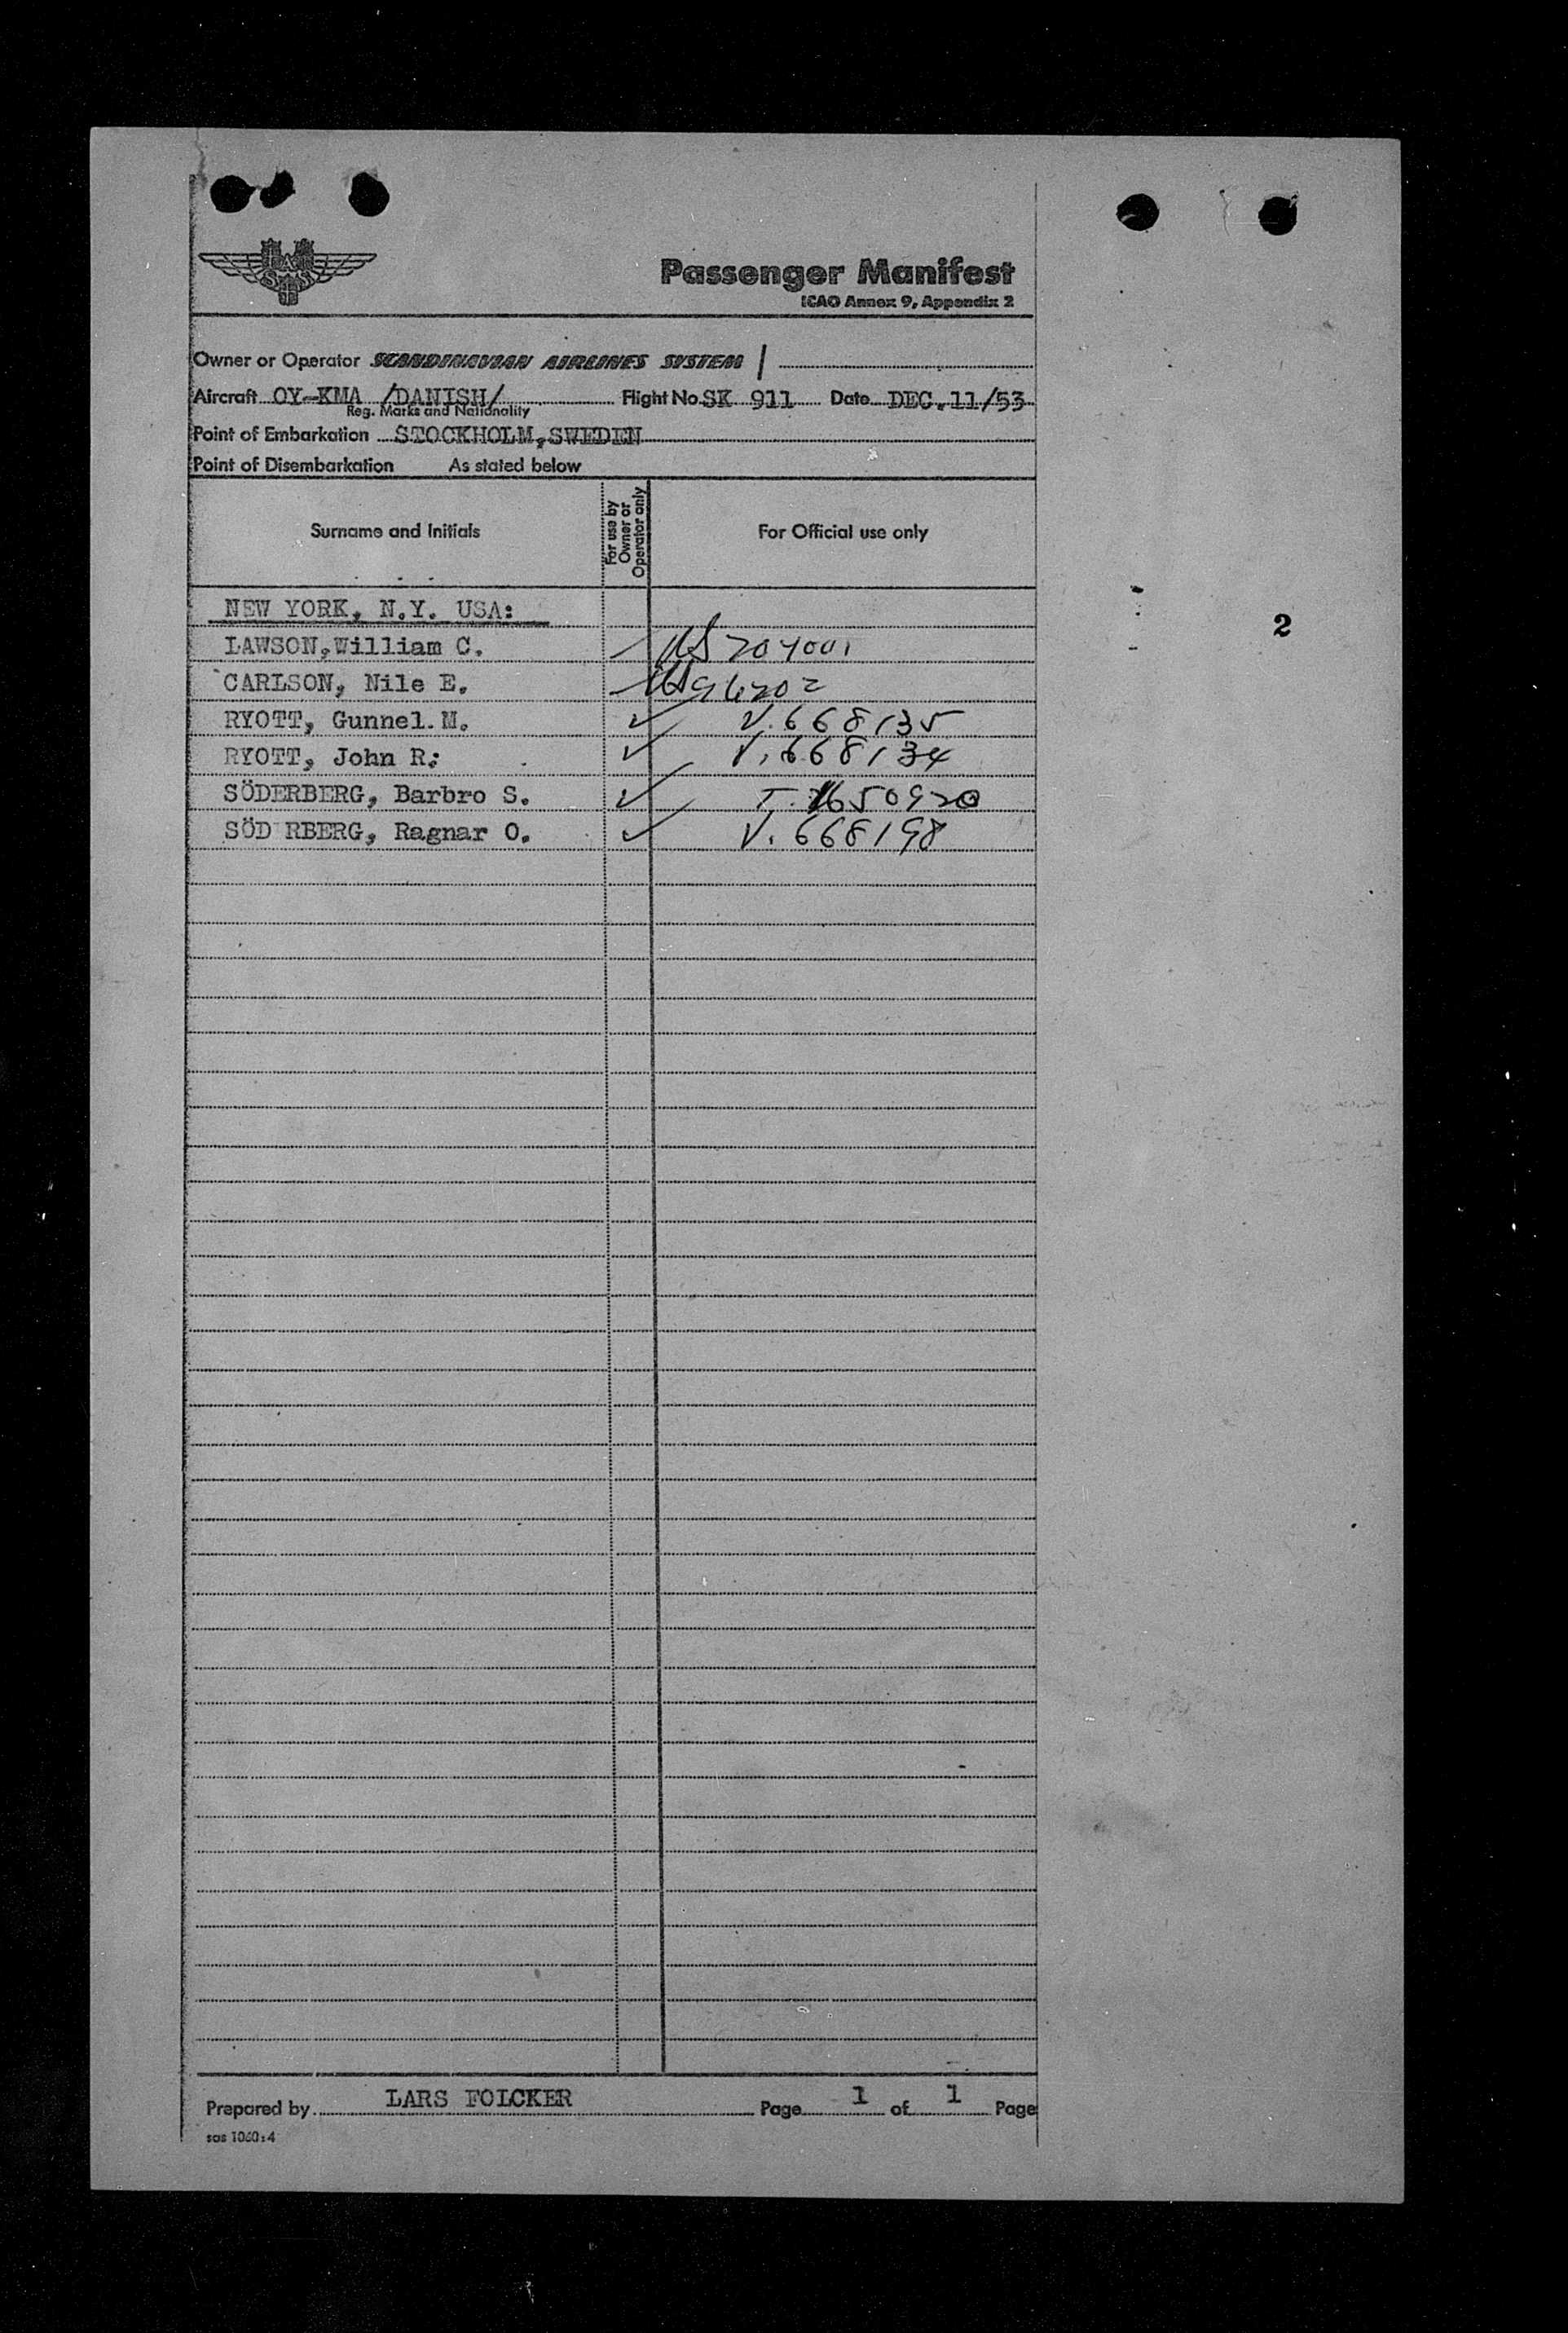 Passenger Manifest
ICAO Annex 9, Appendix 2
Owner or Operator SCANDINAVIAN AIRLINES SYSTEM
Aircraft OY-KMA /DANISH/ Flight No. SK 911 Date DEC. 11/53
Reg. Marks and Nationality
Point of Embarkation STOCKHOLM, SWEDEN
Point of Disembarkation As stated below
Surname and Initials For use by Owner or Operator only For Official use only
NEW YORK, N.Y. USA:
2
LAWSON, William C. US 204001
CARLSON, Nile E. US
RYOTT, Gunnel. M. ✓ V. 668135
RYOTT, John R: ✓ V. 668134
SÖDERBERG, Barbro S. ✓ T. 1650920
SÖD RBERG, Ragnar O. ✓ V. 668198
Prepared by LARS FOLCKER Page 1 of 1 Page
sas 1060:4